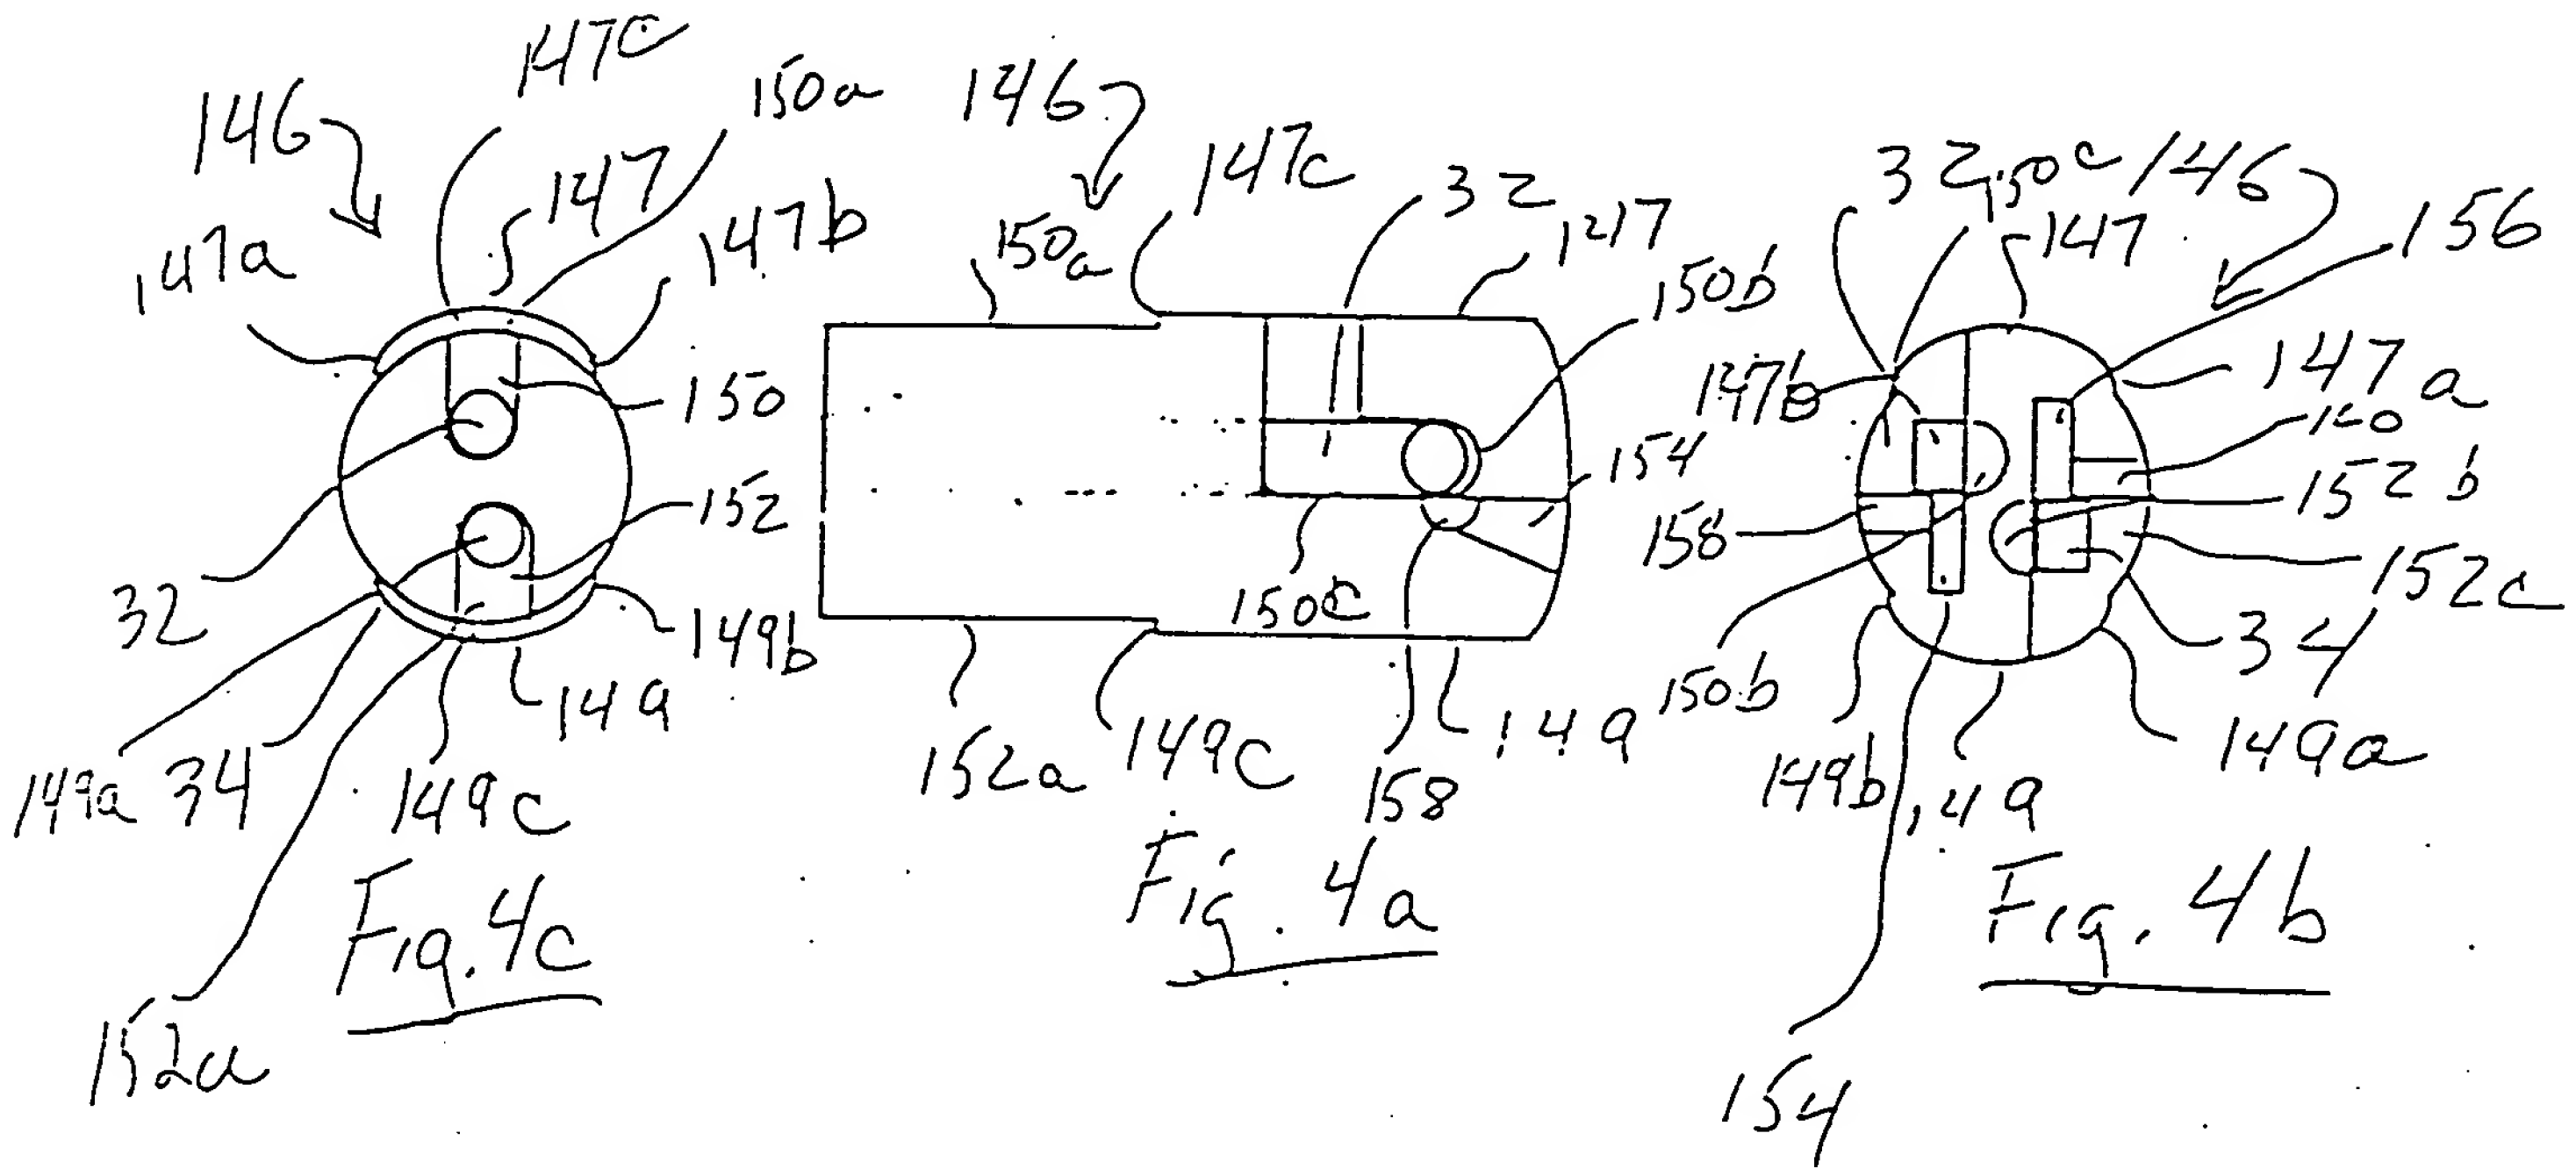 147c
146
150a
147
147a
147b
150
152
32
149b
149
149a
34
149c
152a
Fig. 4c
146
147c
32
150a
147
150b
154
150c
152a
149c
158
149
Fig. 4a
32
150c
146
156
147
147b
147a
160
152b
158
152c
34
150b
149b
149
149a
154
Fig. 4b